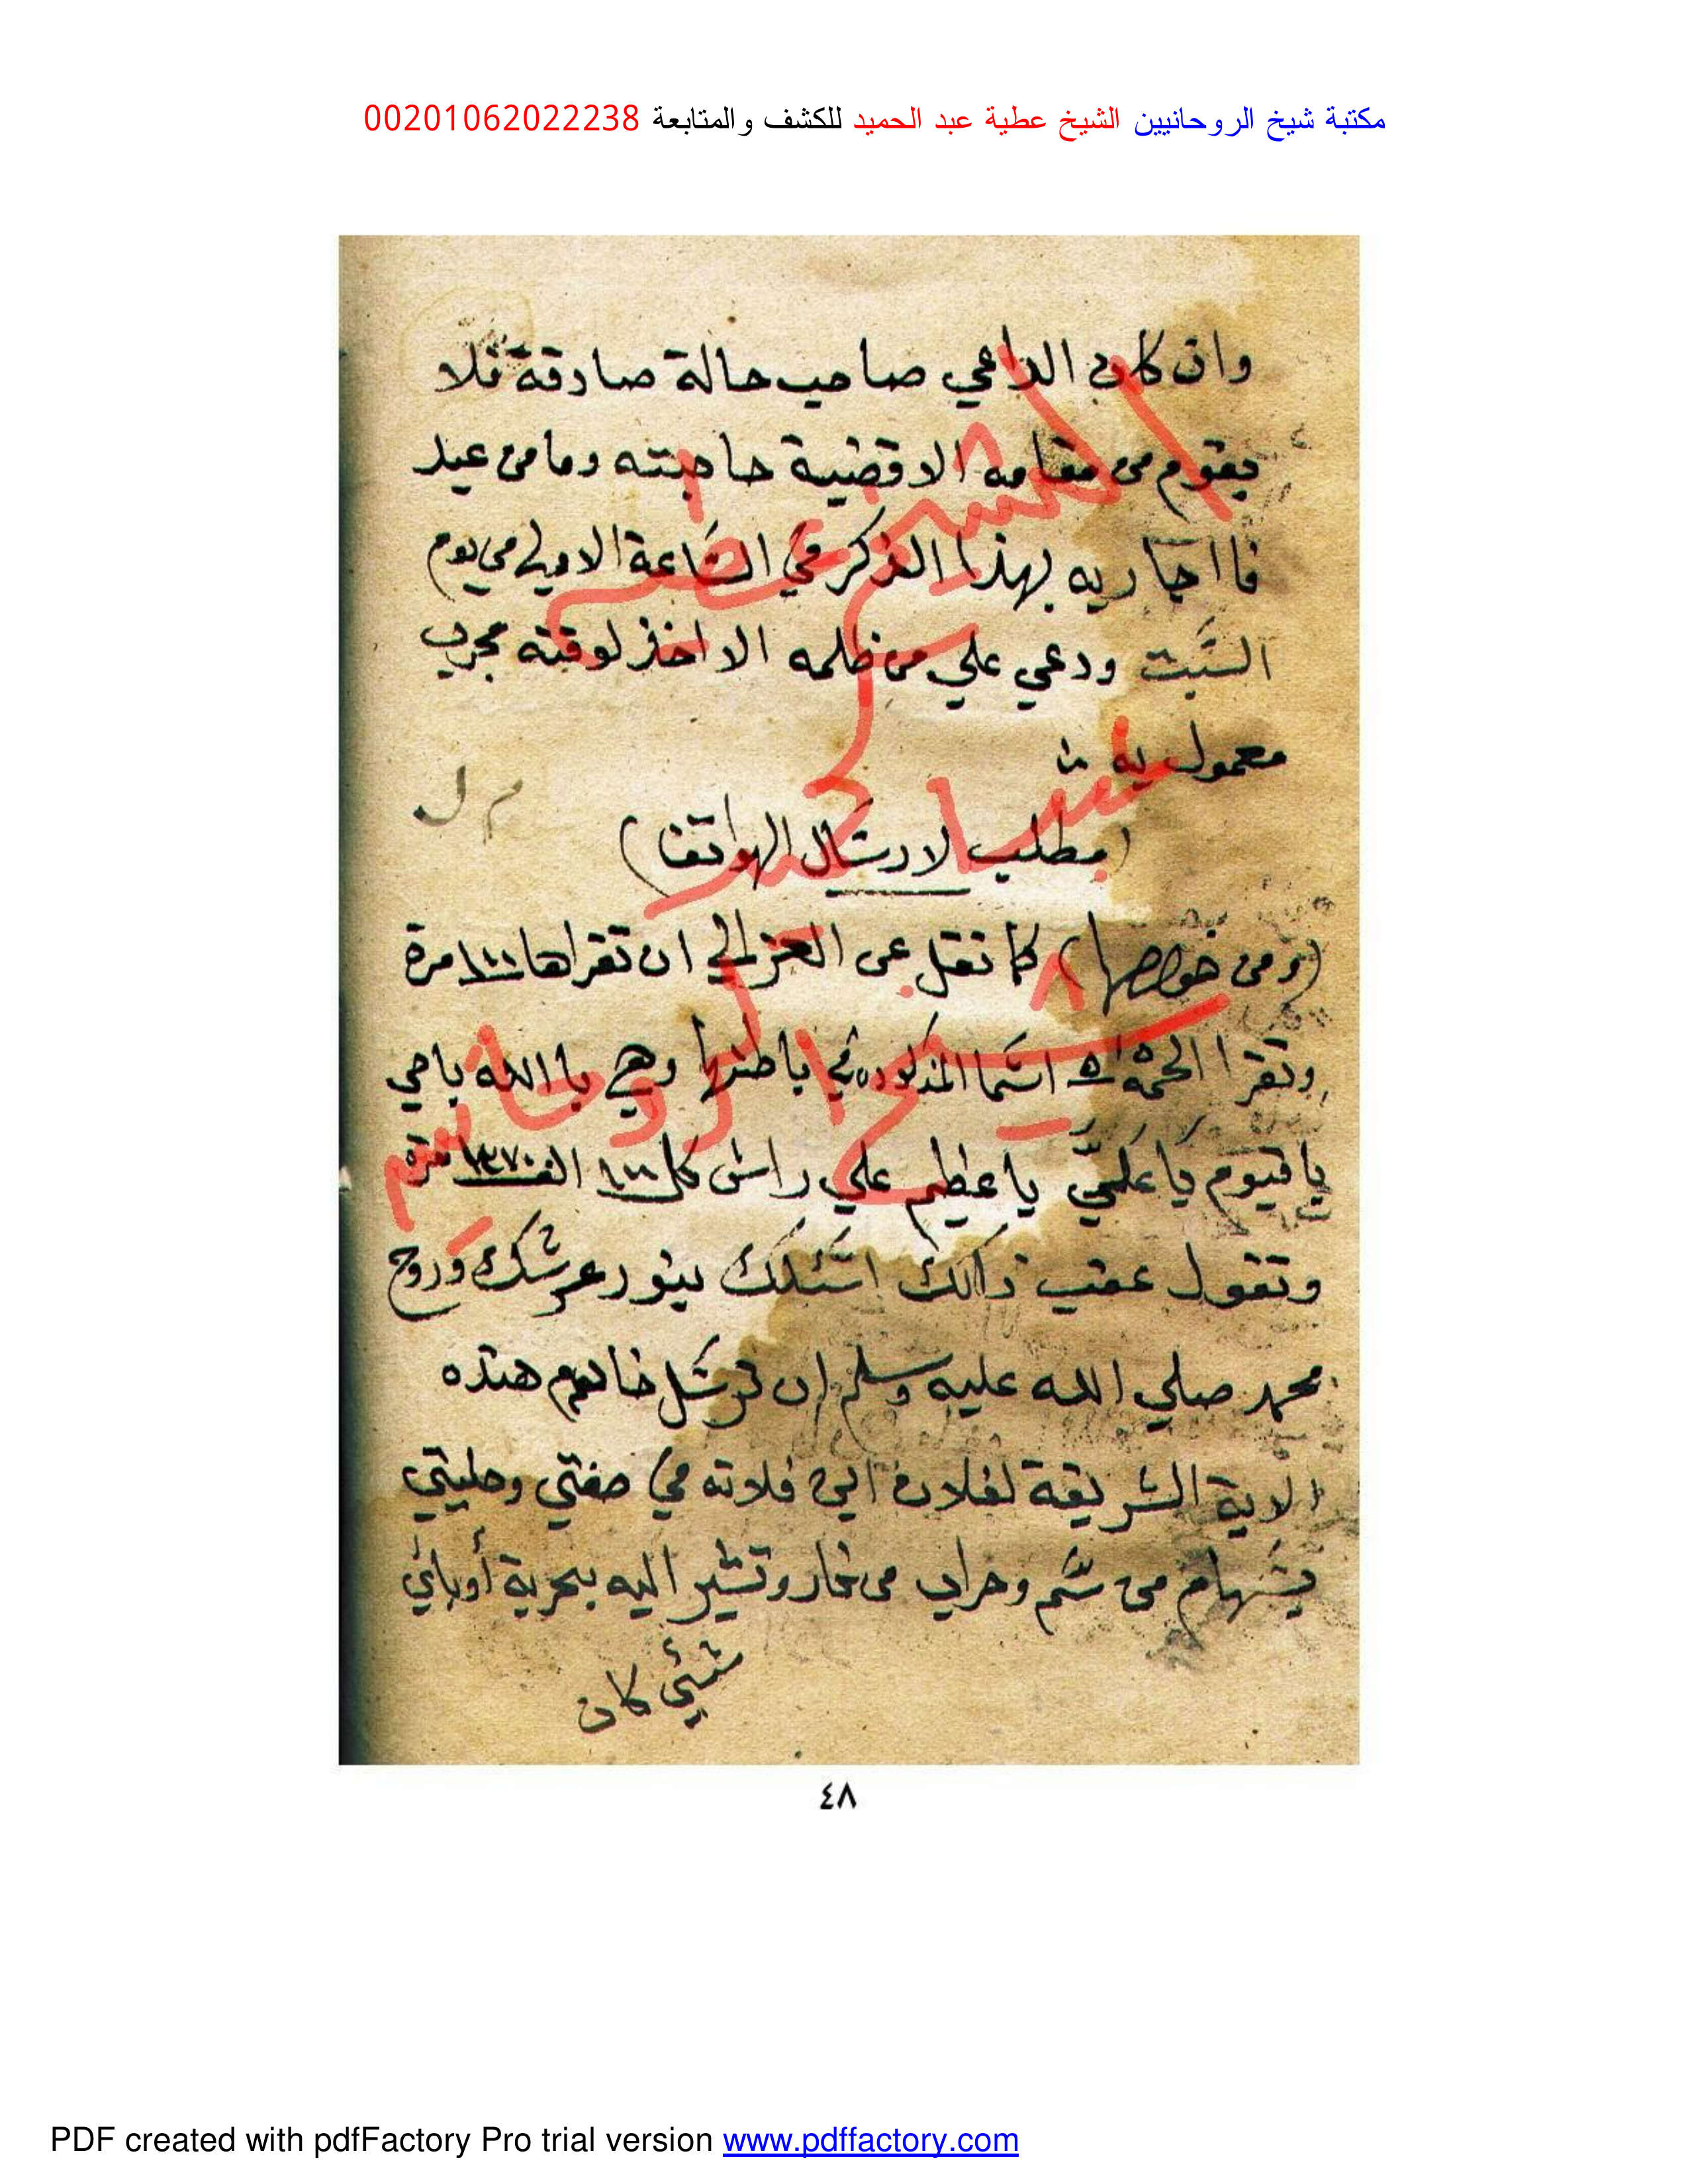 مكتبة شيخ الروحانيين الشيخ عطية عبد الحميد للكشف والمتابعة 00201062022238
وان كان الداعي صاحب حالة صادقة فلا
يقوم من مقامه الا وقضية حاجته وما من عبد
نا اجا ربه بهذا الذكر في السَّاعة الاولى من يوم
السَّبت ودعي علي من ظلمه الا اخذ لوقته مجرب
معمول به
(مطلب لارسال الهواتف)
(ومن خواصها) كما نقل عن الغزالي ان تقراها ١٠٠٠ مرة
وتقرا الخمسة اسما المذكوره في باطنها وهي يا الله يا حي
يا قيوم يا عليّ يا عظيم علي راس كل ١٠٠ الف ١٣٧٠ مرة
وتقول عقب ذالك اسئلك بنور عرشك وروح
محمد صلي الله عليه وسلم ان ترسل خادم هذه
الاية الشريفة لفلان ابن فلانه في صفتي وحليتي
بسهام من سم وحراب من نار وتشير اليه بحربة أو باي
شيئ كان
م ل
الشيخ عطيه
عبد الحميد
شيخ الروحانيين
٤٨
PDF created with pdfFactory Pro trial version www.pdffactory.com